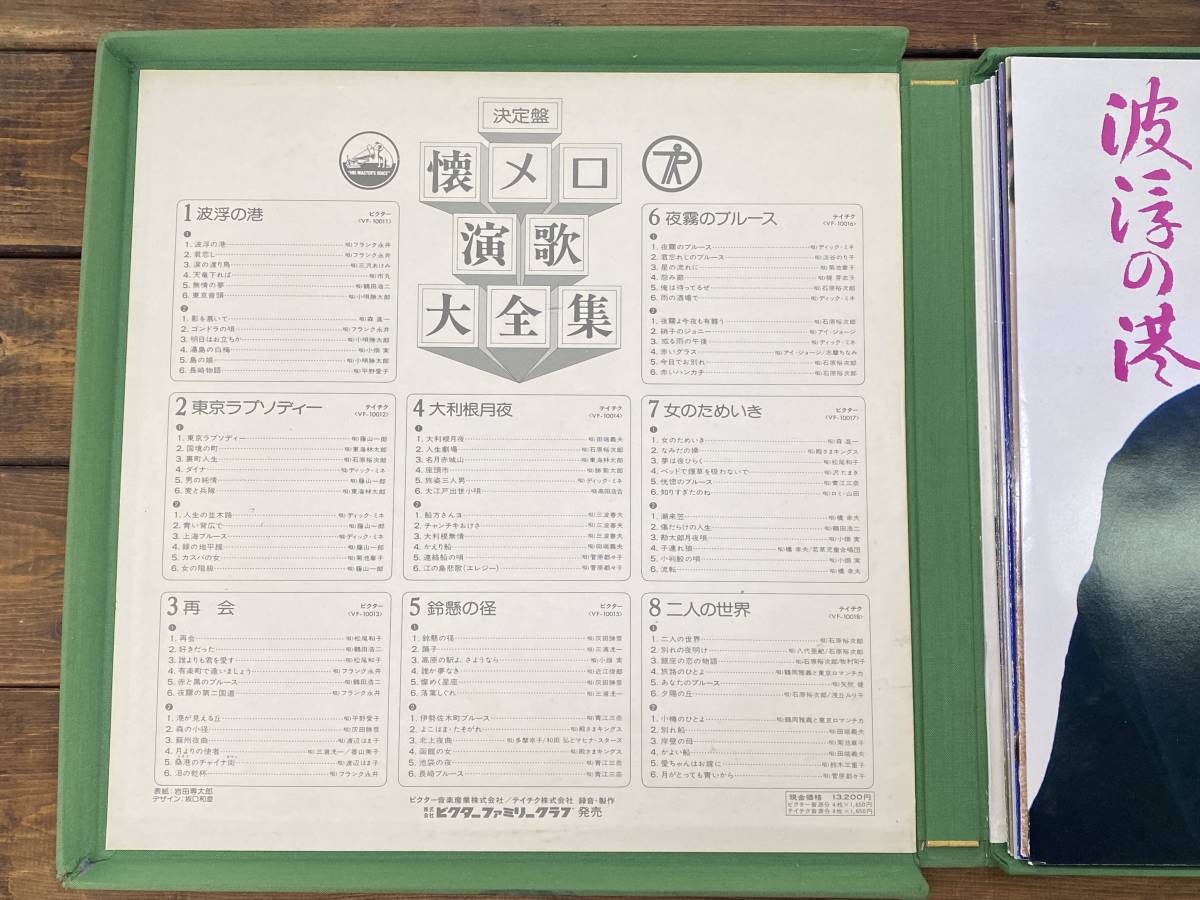 決定盤
懐メロ
演歌
大全集
"HIS MASTER'S VOICE"
1 波浮の港
ビクター
〈VF-10011〉
❶
1. 波浮の港 唄)フランク永井
2. 君恋し 唄)フランク永井
3. 涙の渡り鳥 唄)三沢あけみ
4. 天竜下れば 唄)市丸
5. 無情の夢 唄)鶴田浩二
6. 東京音頭 唄)小唄勝太郎
❷
1. 影を慕いて 唄)森 進一
2. ゴンドラの唄 唄)フランク永井
3. 明日はお立ちか 唄)小唄勝太郎
4. 湯島の白梅 唄)小畑 実
5. 島の娘 唄)小唄勝太郎
6. 長崎物語 唄)平野愛子
2 東京ラプソディー
テイチク
〈VF-10012〉
❶
1. 東京ラプソディー 唄)藤山一郎
2. 国境の町 唄)東海林太郎
3. 裏町人生 唄)石原裕次郎
4. ダイナ 唄)ディック・ミネ
5. 男の純情 唄)藤山一郎
6. 麦と兵隊 唄)東海林太郎
❷
1. 人生の並木路 唄)ディック・ミネ
2. 青い背広で 唄)藤山一郎
3. 上海ブルース 唄)ディック・ミネ
4. 緑の地平線 唄)藤山一郎
5. カスバの女 唄)菊池章子
6. 女の階級 唄)藤山一郎
3 再 会
ビクター
〈VF-10013〉
❶
1. 再会 唄)松尾和子
2. 好きだった 唄)鶴田浩二
3. 誰よりも君を愛す 唄)松尾和子
4. 有楽町で逢いましょう 唄)フランク永井
5. 赤と黒のブルース 唄)鶴田浩二
6. 夜霧の第二国道 唄)フランク永井
❷
1. 港が見える丘 唄)平野愛子
2. 森の小径 唄)灰田勝彦
3. 蘇州夜曲 唄)渡辺はま子
4. 月よりの使者 唄)三浦洸一/香山美子
5. 桑港のチャイナ街 唄)渡辺はま子
6. 泪の乾杯 唄)フランク永井
表紙:岩田専太郎
デザイン:坂口和彦
4 大利根月夜
テイチク
〈VF-10014〉
❶
1. 大利根月夜 唄)田端義夫
2. 人生劇場 唄)石原裕次郎
3. 名月赤城山 唄)東海林太郎
4. 座頭市 唄)勝 新太郎
5. 旅姿三人男 唄)ディック・ミネ
6. 大江戸出世小唄 唄)高田浩吉
❷
1. 船方さんヨ 唄)三波春夫
2. チャンチキおけさ 唄)三波春夫
3. 大利根無情 唄)三波春夫
4. かえり船 唄)田端義夫
5. 連絡船の唄 唄)菅原都々子
6. 江の島悲歌(エレジー) 唄)菅原都々子
5 鈴懸の径
ビクター
〈VF-10015〉
❶
1. 鈴懸の径 唄)灰田勝彦
2. 踊子 唄)三浦洸一
3. 高原の駅よ、さようなら 唄)小畑 実
4. 誰か夢なき 唄)近江俊郎
5. 燦めく星座 唄)灰田勝彦
6. 落葉しぐれ 唄)三浦洸一
❷
1. 伊勢佐木町ブルース 唄)青江三奈
2. よこはま・たそがれ 唄)殿さまキングス
3. 北上夜曲 唄)多摩幸子/和田 弘とマヒナ・スターズ
4. 函館の女 唄)殿さまキングス
5. 池袋の夜 唄)青江三奈
6. 長崎ブルース 唄)青江三奈
6 夜霧のブルース
テイチク
〈VF-10016〉
❶
1. 夜霧のブルース 唄)ディック・ミネ
2. 君忘れじのブルース 唄)淡谷のり子
3. 星の流れに 唄)菊池章子
4. 怨み節 唄)梶 芽衣子
5. 俺は待ってるぜ 唄)石原裕次郎
6. 雨の酒場で 唄)ディック・ミネ
❷
1. 夜霧よ今夜も有難う 唄)石原裕次郎
2. 硝子のジョニー 唄)アイ・ジョージ
3. 或る雨の午後 唄)ディック・ミネ
4. 赤いグラス 唄)アイ・ジョージ/志摩ちなみ
5. 今日でお別れ 唄)石原裕次郎
6. 赤いハンカチ 唄)石原裕次郎
7 女のためいき
ビクター
〈VF-10017〉
❶
1. 女のためいき 唄)森 進一
2. なみだの操 唄)殿さまキングス
3. 夢は夜ひらく 唄)松尾和子
4. ベッドで煙草を吸わないで 唄)沢 たまき
5. 恍惚のブルース 唄)青江三奈
6. 知りすぎたのね 唄)ロミ・山田
❷
1. 潮来笠 唄)橋 幸夫
2. 傷だらけの人生 唄)鶴田浩二
3. 勘太郎月夜唄 唄)小畑 実
4. 子連れ狼 唄)橋 幸夫/若草児童合唱団
5. 小判鮫の唄 唄)小畑 実
6. 流転 唄)橋 幸夫
8 二人の世界
テイチク
〈VF-10018〉
❶
1. 二人の世界 唄)石原裕次郎
2. 別れの夜明け 唄)八代亜紀/石原裕次郎
3. 銀座の恋の物語 唄)石原裕次郎/牧村旬子
4. 旅路のひとよ 唄)鶴岡雅義と東京ロマンチカ
5. あなたのブルース 唄)矢吹 健
6. 夕陽の丘 唄)石原裕次郎/浅丘ルリ子
❷
1. 小樽のひとよ 唄)鶴岡雅義と東京ロマンチカ
2. 別れ船 唄)田端義夫
3. 岸壁の母 唄)菊池章子
4. かよい船 唄)田端義夫
5. 愛ちゃんはお嫁に 唄)鈴木三重子
6. 月がとっても青いから 唄)菅原都々子
ビクター音楽産業株式会社/テイチク株式会社 録音・製作
株式会社 ビクターファミリークラブ 発売
現金価格 13,200円
ビクター音源分 4枚×1,650円
テイチク音源分 4枚×1,650円
波浮の港